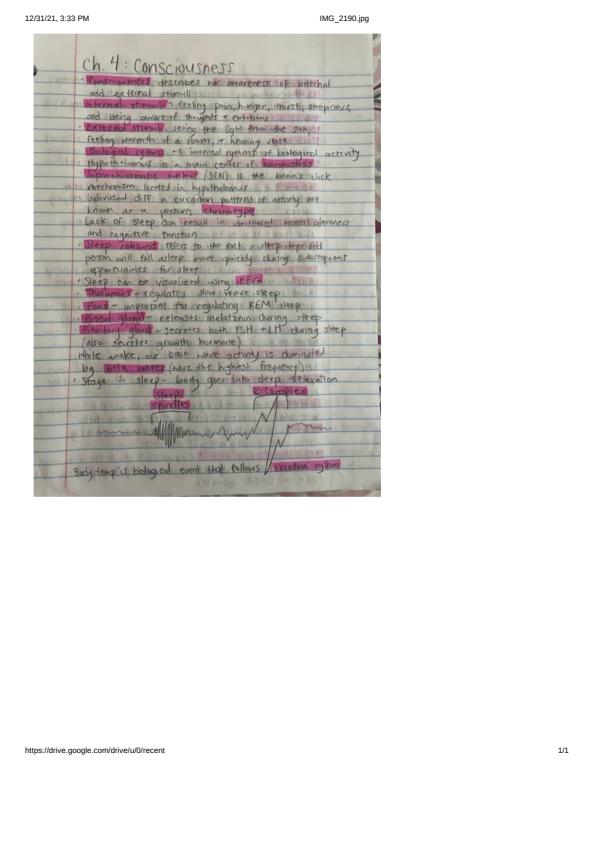 12/31/21, 3:33 PM
IMG_2190.jpg
Ch. 4: Consciousness
· Consciousness describes our awareness of internal
and external stimuli
· Internal stimuli = feeling pain, hunger, thirst, sleepiness,
and being aware of thoughts + emotions
· External stimuli seeing the light from the sun,
feeling warmth of a room, + hearing
· Biological rythms internal rythms of biological activity
· Hypothalamus is a main center of homeostasis
· Suprachiasmatic nucleus (SCN) is the brain's clock
mechanism located in hypothalamus
· Individual diff. in circadian patterns of activity are
known as a person's chronotype
· Lack of sleep can result in decreased mental alertness
and cognitive function
· Sleep rebound refers to the fact a sleep-deprived
person will fall asleep more quickly during subsequent
opportunities for sleep
· Sleep can be visualized using EEG
· Thalamus - regulates slow-wave sleep
· Pons - important for regulating REM sleep
· Pineal gland - releases melatonin during sleep
· Pituitary gland - secretes both FSH + LH during sleep
(also secretes growth hormone)
While awake, our brain wave activity is dominated
by beta waves (have the highest frequency)
· Stage 2 sleep - body goes into deep relaxation
sleep
spindle
K-complex
Body temp is biological event that follows circadian rythm
https://drive.google.com/drive/u/0/recent
1/1